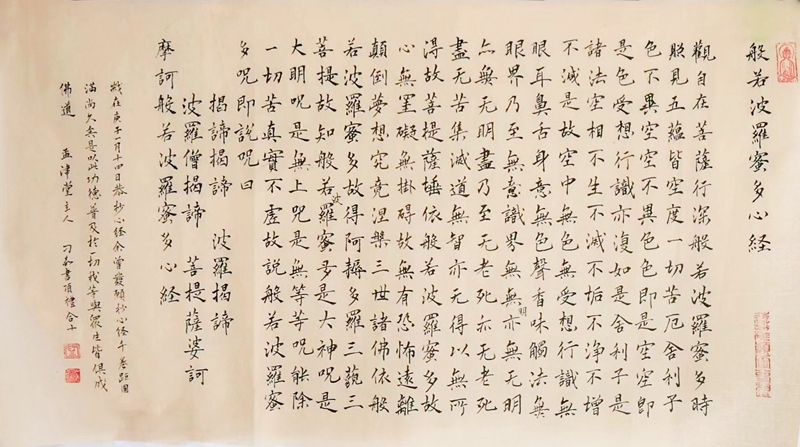 般若波羅蜜多心经
觀自在菩薩行深般若波羅蜜多時
照見五蘊皆空度一切苦厄舍利子
色不異空空不異色色即是空空即
是色受想行識亦復如是舍利子是
諸法空相不生不滅不垢不淨不增
不滅是故空中無色無受想行識無
眼耳鼻舌身意無色聲香味觸法無
眼界乃至無意識界無無明亦無明
亦無无明盡乃至无老死亦无老死
盡无苦集滅道無智亦无得以無所
得故菩提薩埵依般若波羅蜜多故
心無罣礙無掛碍故無有恐怖遠離
顛倒夢想究竟涅槃三世諸佛依般
若波羅蜜多故得阿耨多羅三藐三
菩提故知般若波羅蜜多是大神呪是
大明呪是無上呪是無等等呪能除
一切苦真實不虛故説般若波羅蜜
多呪即説呪曰
揭諦揭諦 波羅揭諦
波羅僧揭諦 菩提薩婆訶
摩訶般若波羅蜜多心经
在庚子月十四日恭抄心经余曾發願抄心经千卷距圓
滿尚欠是以此功德普及於一切我等與眾生皆俱成
佛道 孟津堂主人 書頂禮合十